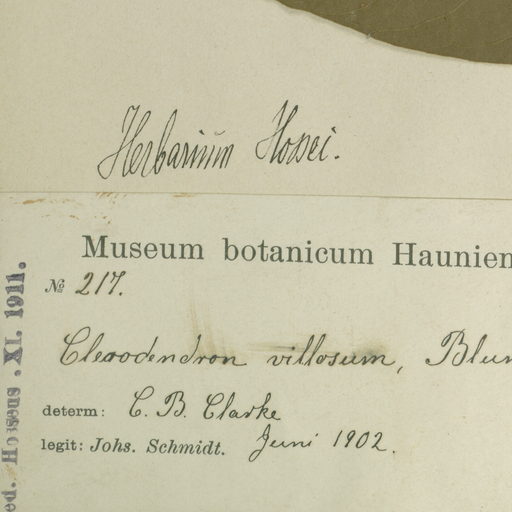 Herbarium Hossei.
Museum botanicum Haunien
№ 217.
Clerodendron villosum, Blum
determ: C. B. Clarke
legit: Johs. Schmidt. Juni 1902.
ed. Hosseus . XI. 1911.